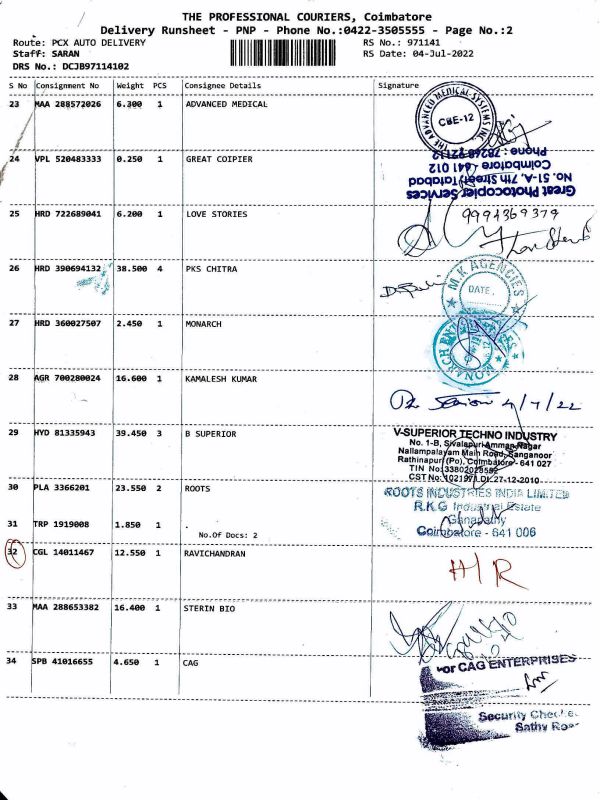 THE PROFESSIONAL COURIERS, Coimbatore
Delivery Runsheet - PNP - Phone No.:0422-3505555 - Page No.:2
Route: PCX AUTO DELIVERY
RS No.: 971141
Staff: SARAN
RS Date: 04-Jul-2022
DRS No.: DCJB97114102
S No Consignment No Weight PCS Consignee Details Signature
23 MAA 288572026 6.300 1 ADVANCED MEDICAL
THE ADVANCED MEDICAL SYSTEMS INC
CBE-12
24 VPL 520483333 0.250 1 GREAT COIPIER
Great Photocopier Services
No. 51-A, 7th Street, Tatabad
Coimbatore - 641 012
Phone :
25 HRD 722689041 6.200 1 LOVE STORIES
9994369379
26 HRD 390694132 38.500 4 PKS CHITRA
M.K AGENCIES
DATE.
27 HRD 360027507 2.450 1 MONARCH
MONARCH
28 AGR 700280024 16.600 1 KAMALESH KUMAR
4/7/22
29 HYD 81335943 39.450 3 B SUPERIOR
V-SUPERIOR TECHNO INDUSTRY
No. 1-B, Sivalapuri Amman Nagar
Nallampalayam Main Road, Sanganoor
Rathinapuri (Po), Coimbatore - 641 027
TIN No:
CST No: Dt.27-12-2010
30 PLA 3366201 23.550 2 ROOTS
ROOTS INDUSTRIES INDIA LIMITED
R.K.G Industrial Estate
Ganapathy
Coimbatore - 641 006
31 TRP 1919008 1.850 1 .
No.Of Docs: 2
32 CGL 14011467 12.550 1 RAVICHANDRAN
H/R
33 MAA 288653382 16.400 1 STERIN BIO
34 SPB 41016655 4.650 1 CAG
For CAG ENTERPRISES
Security Check
Sathy Road